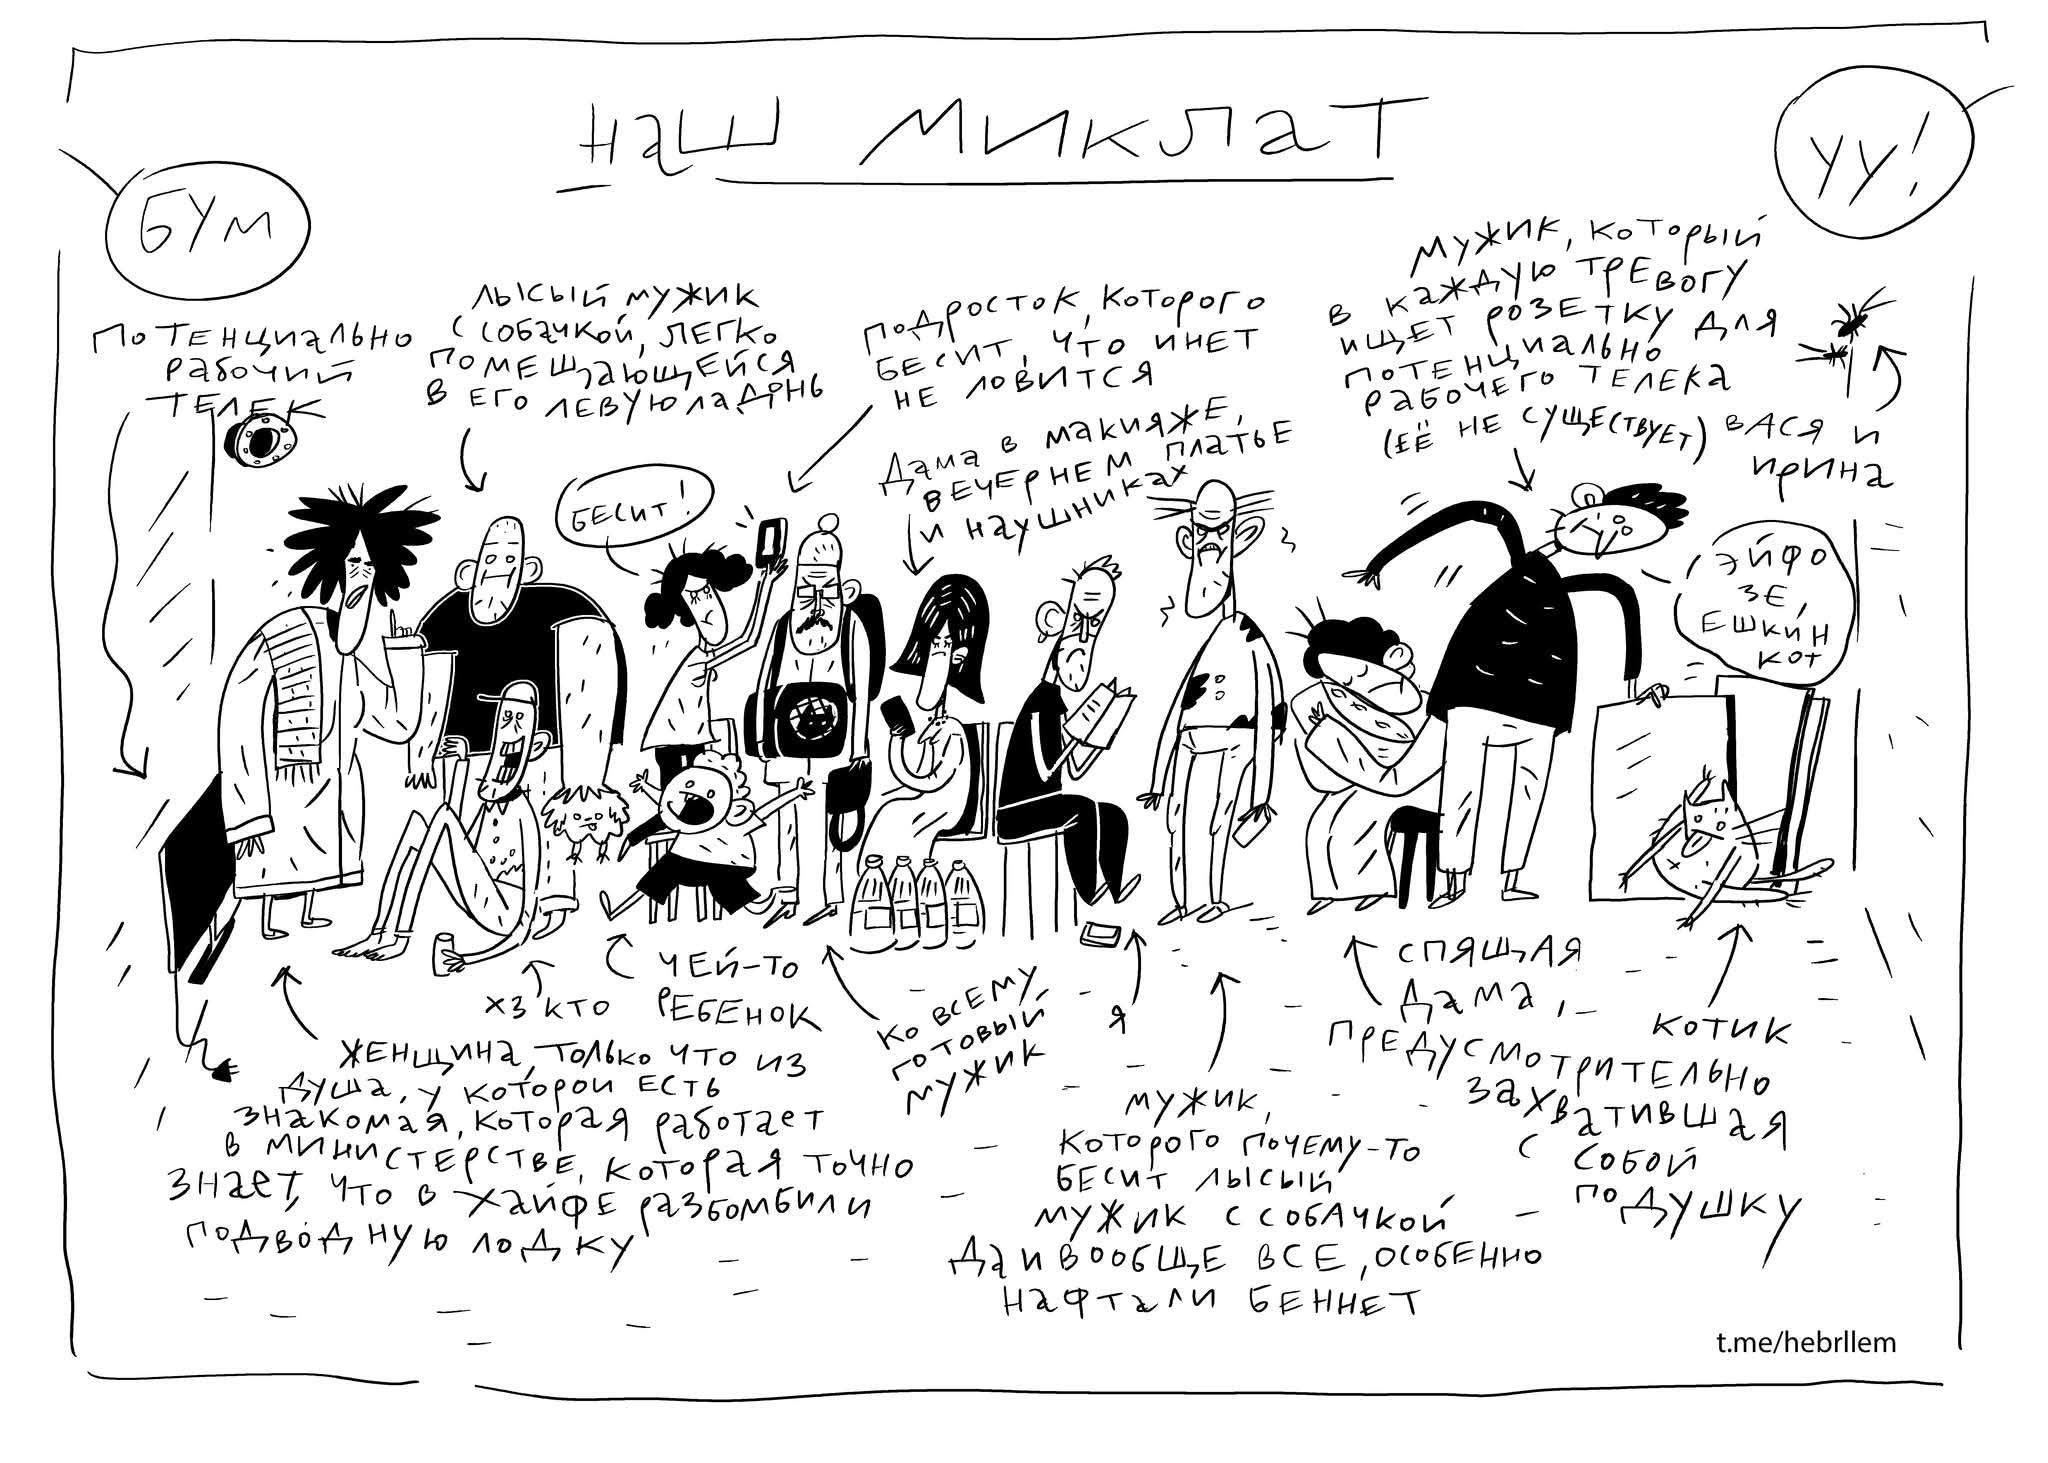 наш миклат
БУМ
УУ!
ПОТЕНЦИАЛЬНО
рабочий
ТЕЛЕК
лысый мужик
с собачкой, легко
помещающейся
в его левую ладонь
БЕСИТ!
подросток, которого
бесит, что инет
не ловится
Дама в макияже,
вечернем платье
и наушниках
мужик, который
в каждую тревогу
ищет розетку для
потенциально
рабочего телека
(её не существует)
Вася и
Ирина
ЭЙФО
ЗЕ,
ЕШКИН
КОТ
женщина, только что из
душа, у которой есть
знакомая, которая работает
в министерстве, которая точно
знает, что в Хайфе разбомбили
подводную лодку
хз кто
чей-то
ребенок
ко всему
готовый
мужик
я
мужик,
которого почему-то
бесит лысый
мужик с собачкой
да и вообще все, особенно
нафтали беннет
спящая
дама,
предусмотрительно
захватившая
с собой
подушку
котик
t.me/hebrllem